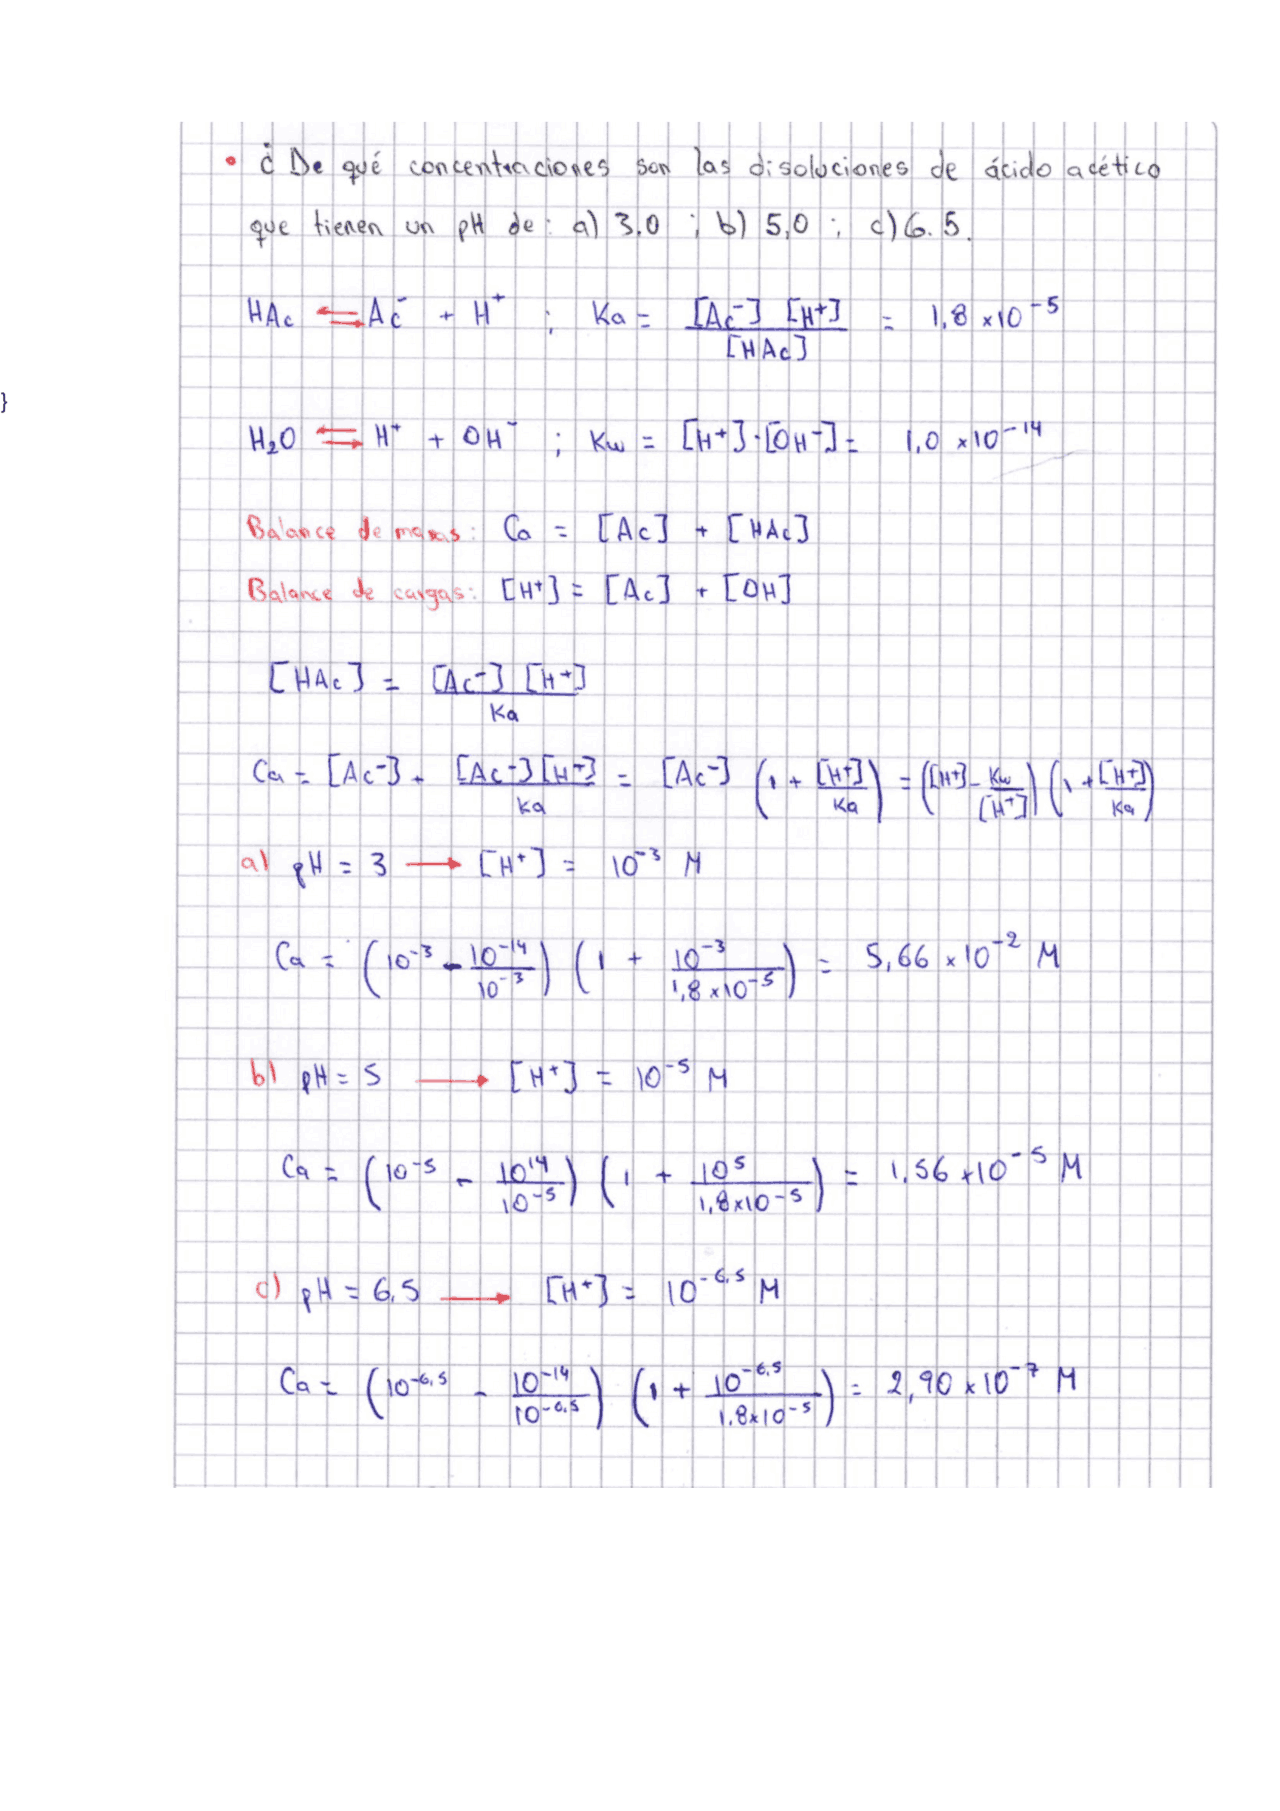 • ¿De qué concentraciones son las disoluciones de ácido acético
que tienen un pH de: a) 3,0 ; b) 5,0 ; c) 6.5.
HAc ⇌ Ac⁻ + H⁺ ; Ka = [Ac⁻] [H⁺] / [HAc] = 1,8 x10⁻⁵
}
H₂O ⇌ H⁺ + OH⁻ ; Kw = [H⁺]·[OH⁻] = 1,0 x10⁻¹⁴
Balance de masas: Ca = [Ac] + [HAc]
Balance de cargas: [H⁺] = [Ac] + [OH]
[HAc] = [Ac⁻] [H⁺] / Ka
Ca = [Ac⁻] + [Ac⁻][H⁺] / Ka = [Ac⁻] (1 + [H⁺] / Ka) = ([H⁺] - Kw / [H⁺]) (1 + [H⁺] / Ka)
a) pH = 3 → [H⁺] = 10⁻³ M
Ca = (10⁻³ - 10⁻¹⁴ / 10⁻³) (1 + 10⁻³ / 1,8 x10⁻⁵) = 5,66 x10⁻² M
b) pH = 5 → [H⁺] = 10⁻⁵ M
Ca = (10⁻⁵ - 10¹⁴ / 10⁻⁵) (1 + 10⁵ / 1,8x10⁻⁵) = 1,56 x10⁻⁵ M
c) pH = 6,5 → [H⁺] = 10⁻⁶·⁵ M
Ca = (10⁻⁶·⁵ - 10⁻¹⁴ / 10⁻⁶·⁵) (1 + 10⁻⁶·⁵ / 1,8x10⁻⁵) = 2,90 x10⁻⁷ M